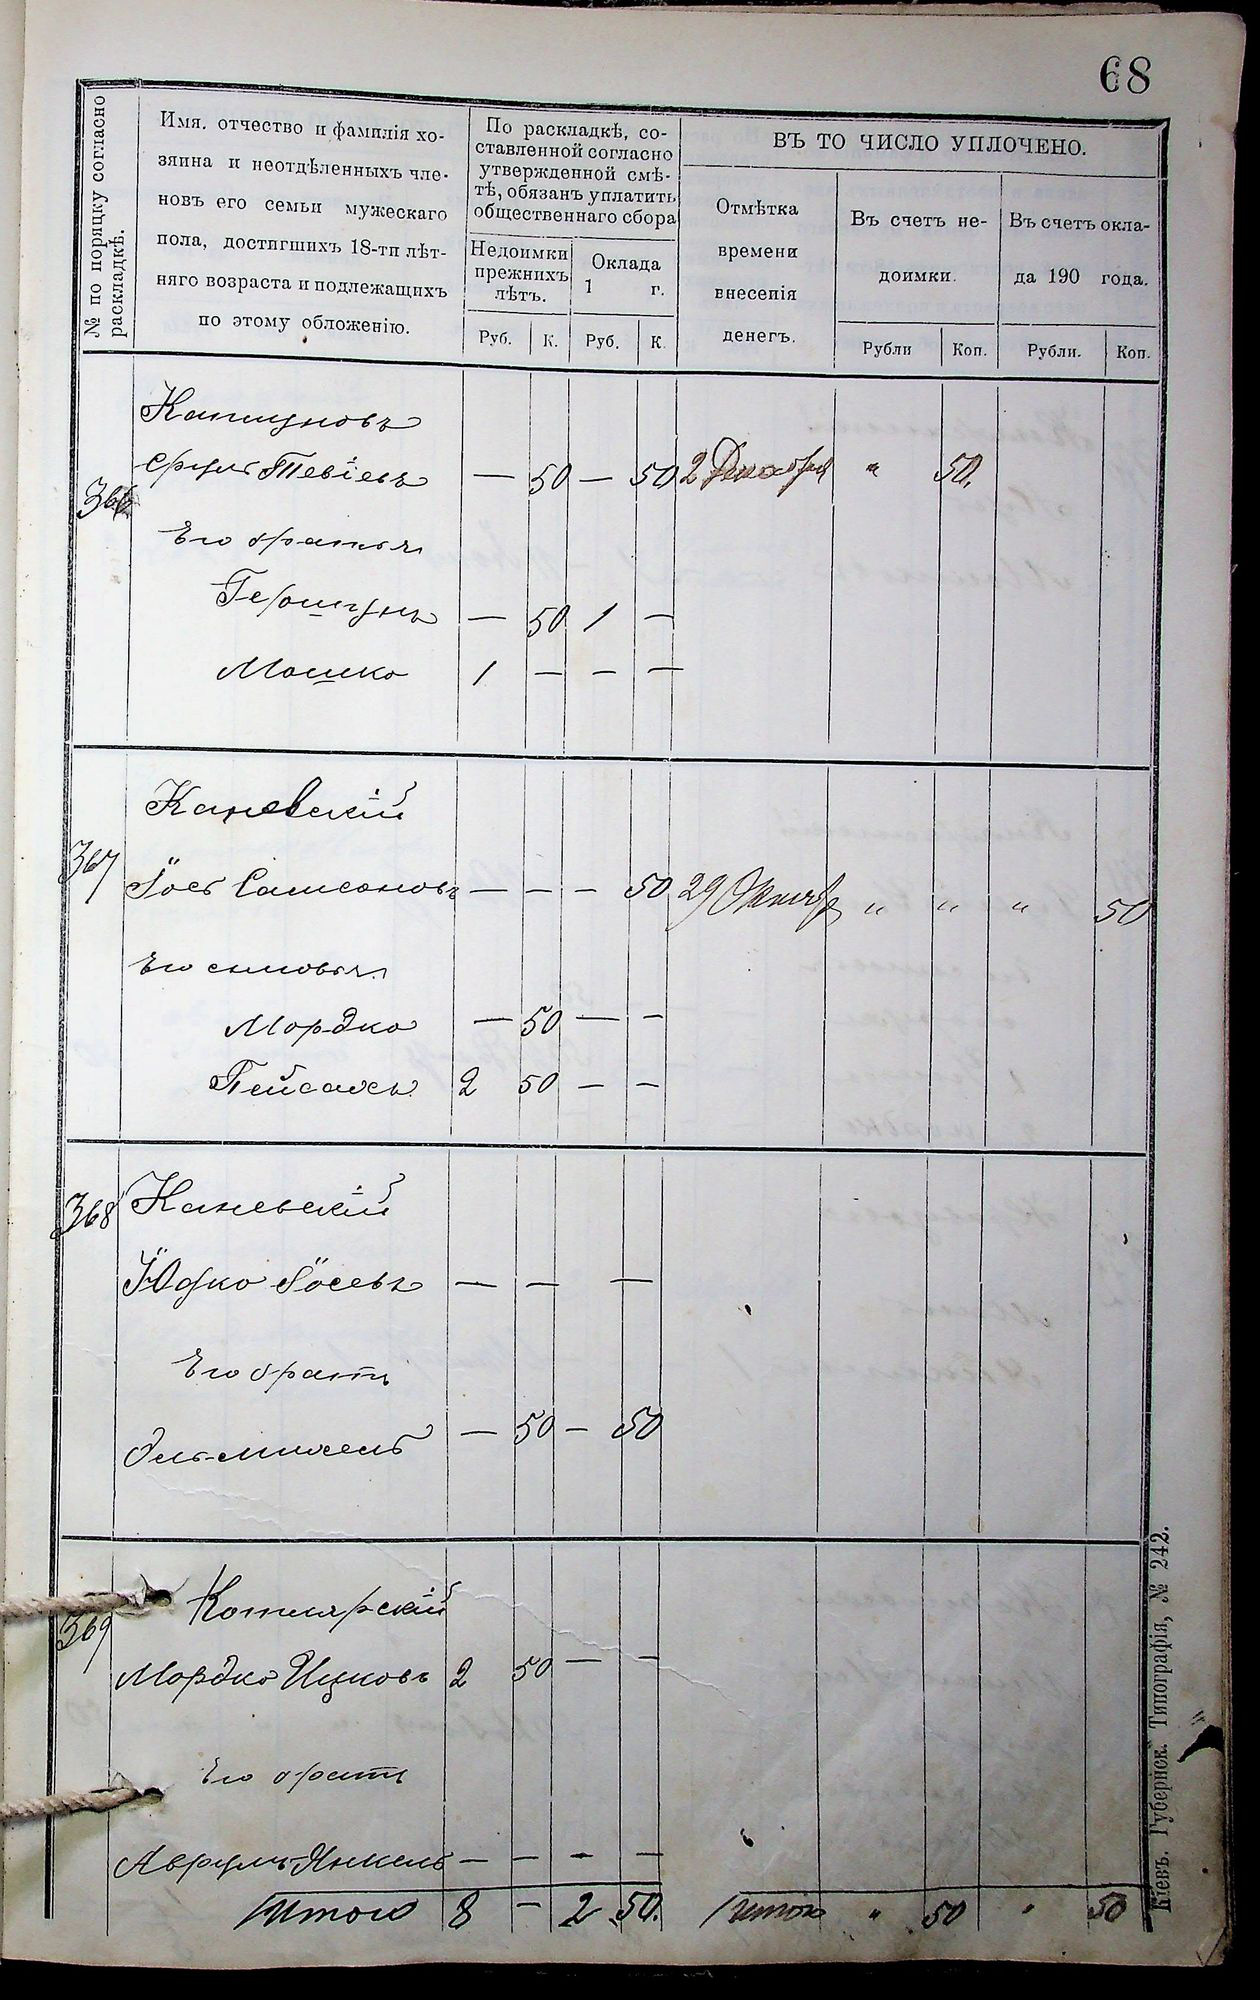 68
№ по порядку согласно раскладкѣ.
Имя, отчество и фамилія хо-
зяина и неотдѣленныхъ чле-
новъ его семьи мужескаго
пола, достигшихъ 18-ти лѣт-
няго возраста и подлежащихъ
по этому обложенію.
По раскладкѣ, со-
ставленной согласно
утвержденной смѣ-
тѣ, обязанъ уплатить
общественнаго сбора
Недоимки
прежнихъ
лѣтъ.
Оклада
1 г.
Руб. К. Руб. К.
ВЪ ТО ЧИСЛО УПЛОЧЕНО.
Отмѣтка
времени
внесенія
денегъ.
Въ счетъ не-
доимки.
Рубли Коп.
Въ счетъ окла-
да 190 года.
Рубли. Коп.
366
Сруль Тевіевъ — 50 — 50 2 Декабря " 50.
Его братья
Гершунъ — 50 1 —
Мошко 1 — — —
367
Каневскій
Іось Самсоновъ — — — 50 29 Октябр " " " 50
Его сыновья
Мордко — 50 — —
Пейсахъ 2 50 — —
368
Каневскій
Юдко Іосевъ — — —
Его братъ
Эль-Михель — 50 — 50
369
Котлярскій
Мордко Ицковъ 2 50 — —
Его братъ
Аврумъ Янкель — — — —
Итого 8 — 2 50. Итого " 50 " 50
Кіевъ. Губернск. Типографія, № 242.